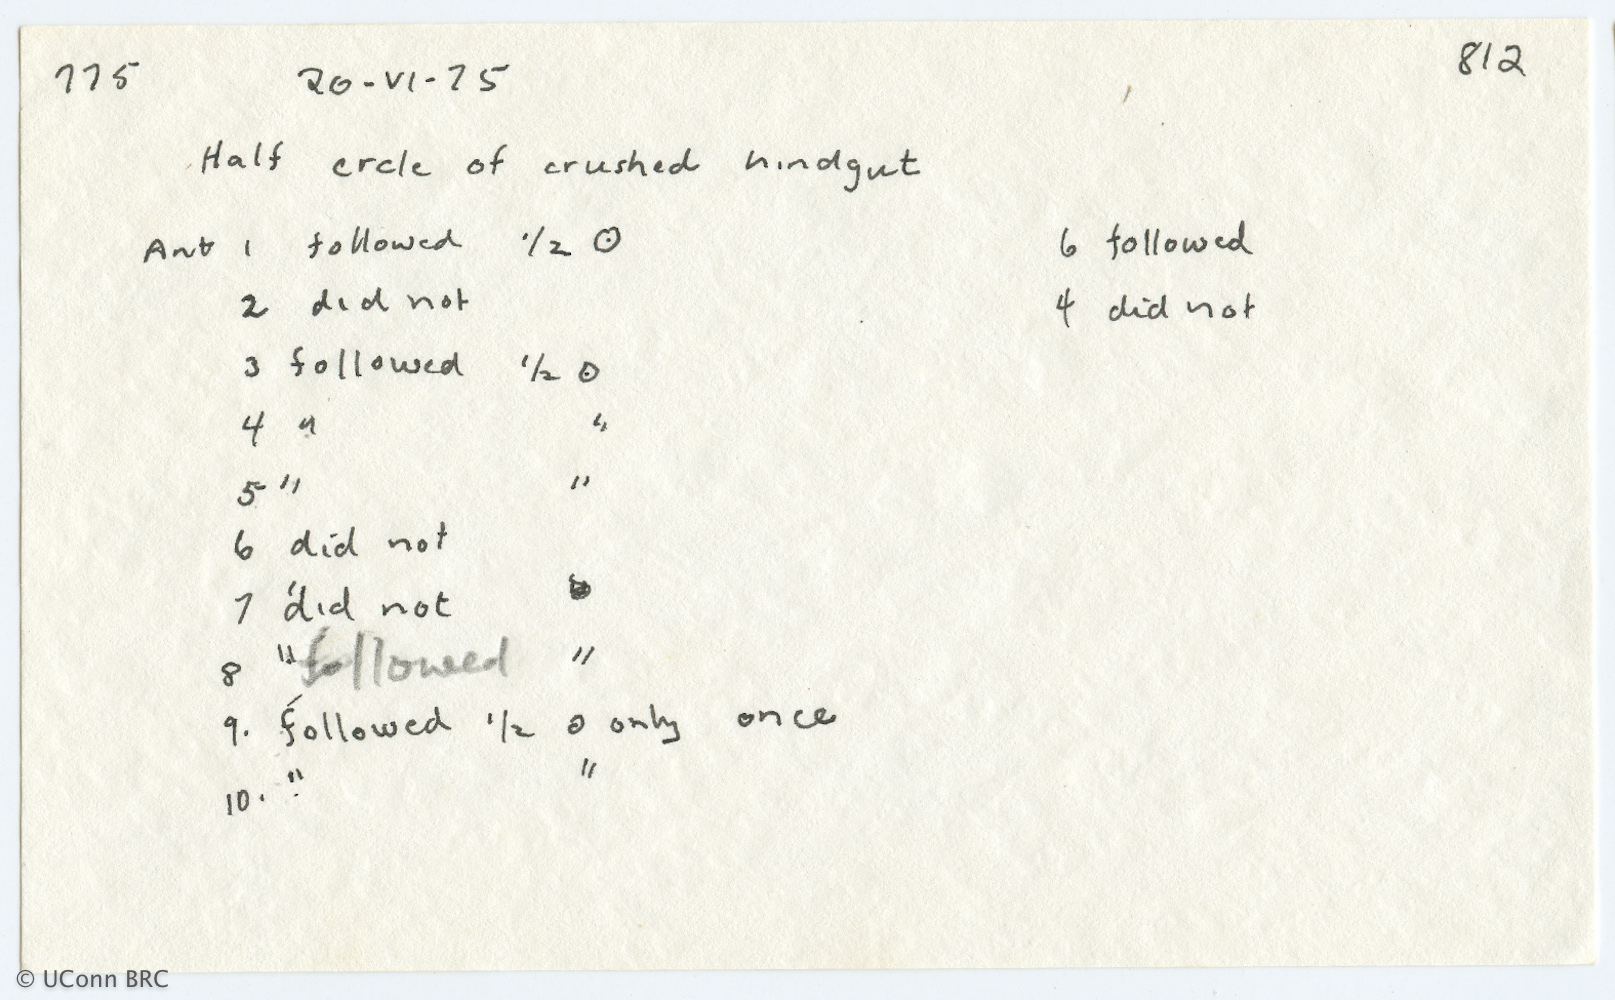 775 20-VI-75 812
Half crcle of crushed hindgut
Ant 1 followed 1/2 ⊙ 6 followed
2 did not 4 did not
3 followed 1/2 ⊙
4 " "
5 " "
6 did not
7 did not
8 " followed "
9. followed 1/2 ⊙ only once
10. " "
© UConn BRC